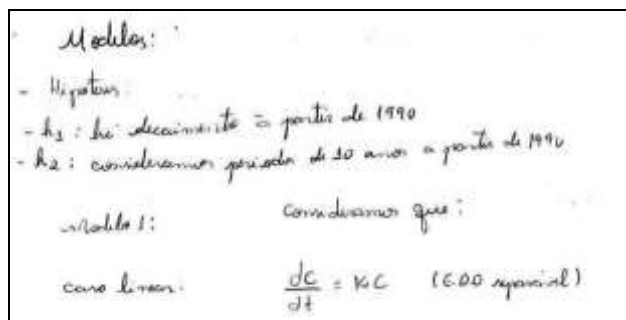 Modelos:
- Hipóteses:
- h1: há decaimento à partir de 1990
- h2: consideramos períodos de 10 anos a partir de 1990
Modelo 1: Consideramos que:
caso linear. dc/dt = K.C (E.D.O separável)